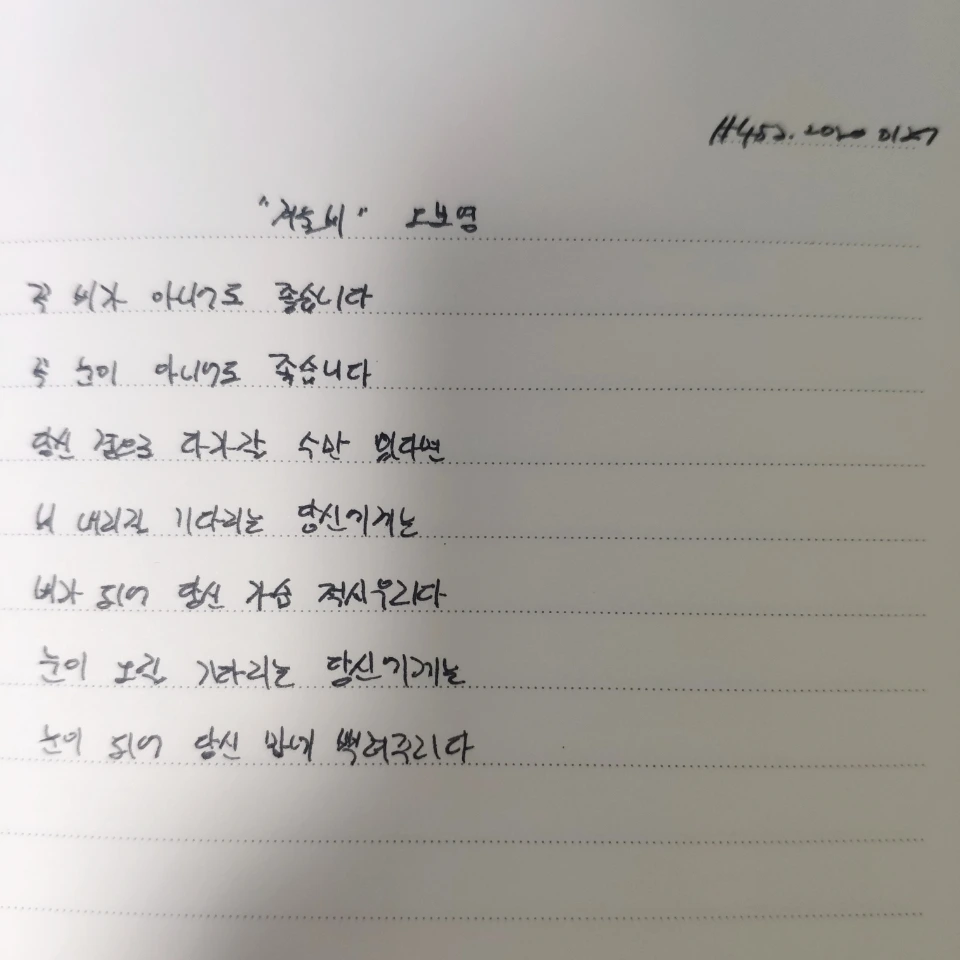 #452. 2020 0127
"겨울비" 오보영
꼭 비가 아니어도 좋습니다
꼭 눈이 아니어도 좋습니다
당신 곁으로 다가갈 수만 있다면
비 내리길 기다리는 당신에게는
비가 되어 당신 가슴 적시우리다
눈이 오길 기다리는 당신에게는
눈이 되어 당신 맘에 뿌려주리다